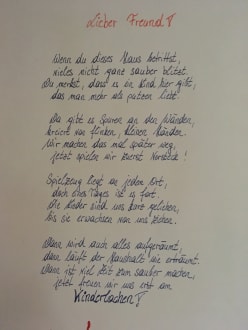 Lieber Freund!
Wenn du dieses Haus betrittst,
vieles nicht ganz sauber blitzt.
Du merkst, dass es ein Kind hier gibt,
das man mehr als putzen liebt.
Da gibt es Spuren an den Wänden,
kreiert von flinken, kleinen Händen.
Wir machen das mal später weg,
jetzt spielen wir zuerst Versteck!
Spielzeug liegt an jedem Ort,
doch eines Tages ist es fort.
Die Kinder sind uns kurz geliehen,
bis sie erwachsen von uns ziehen.
Dann wird auch alles aufgeräumt,
dann läuft der Haushalt wie erträumt.
Dann ist viel Zeit zum sauber machen,
jetzt freuen wir uns erst am
Kinderlachen!